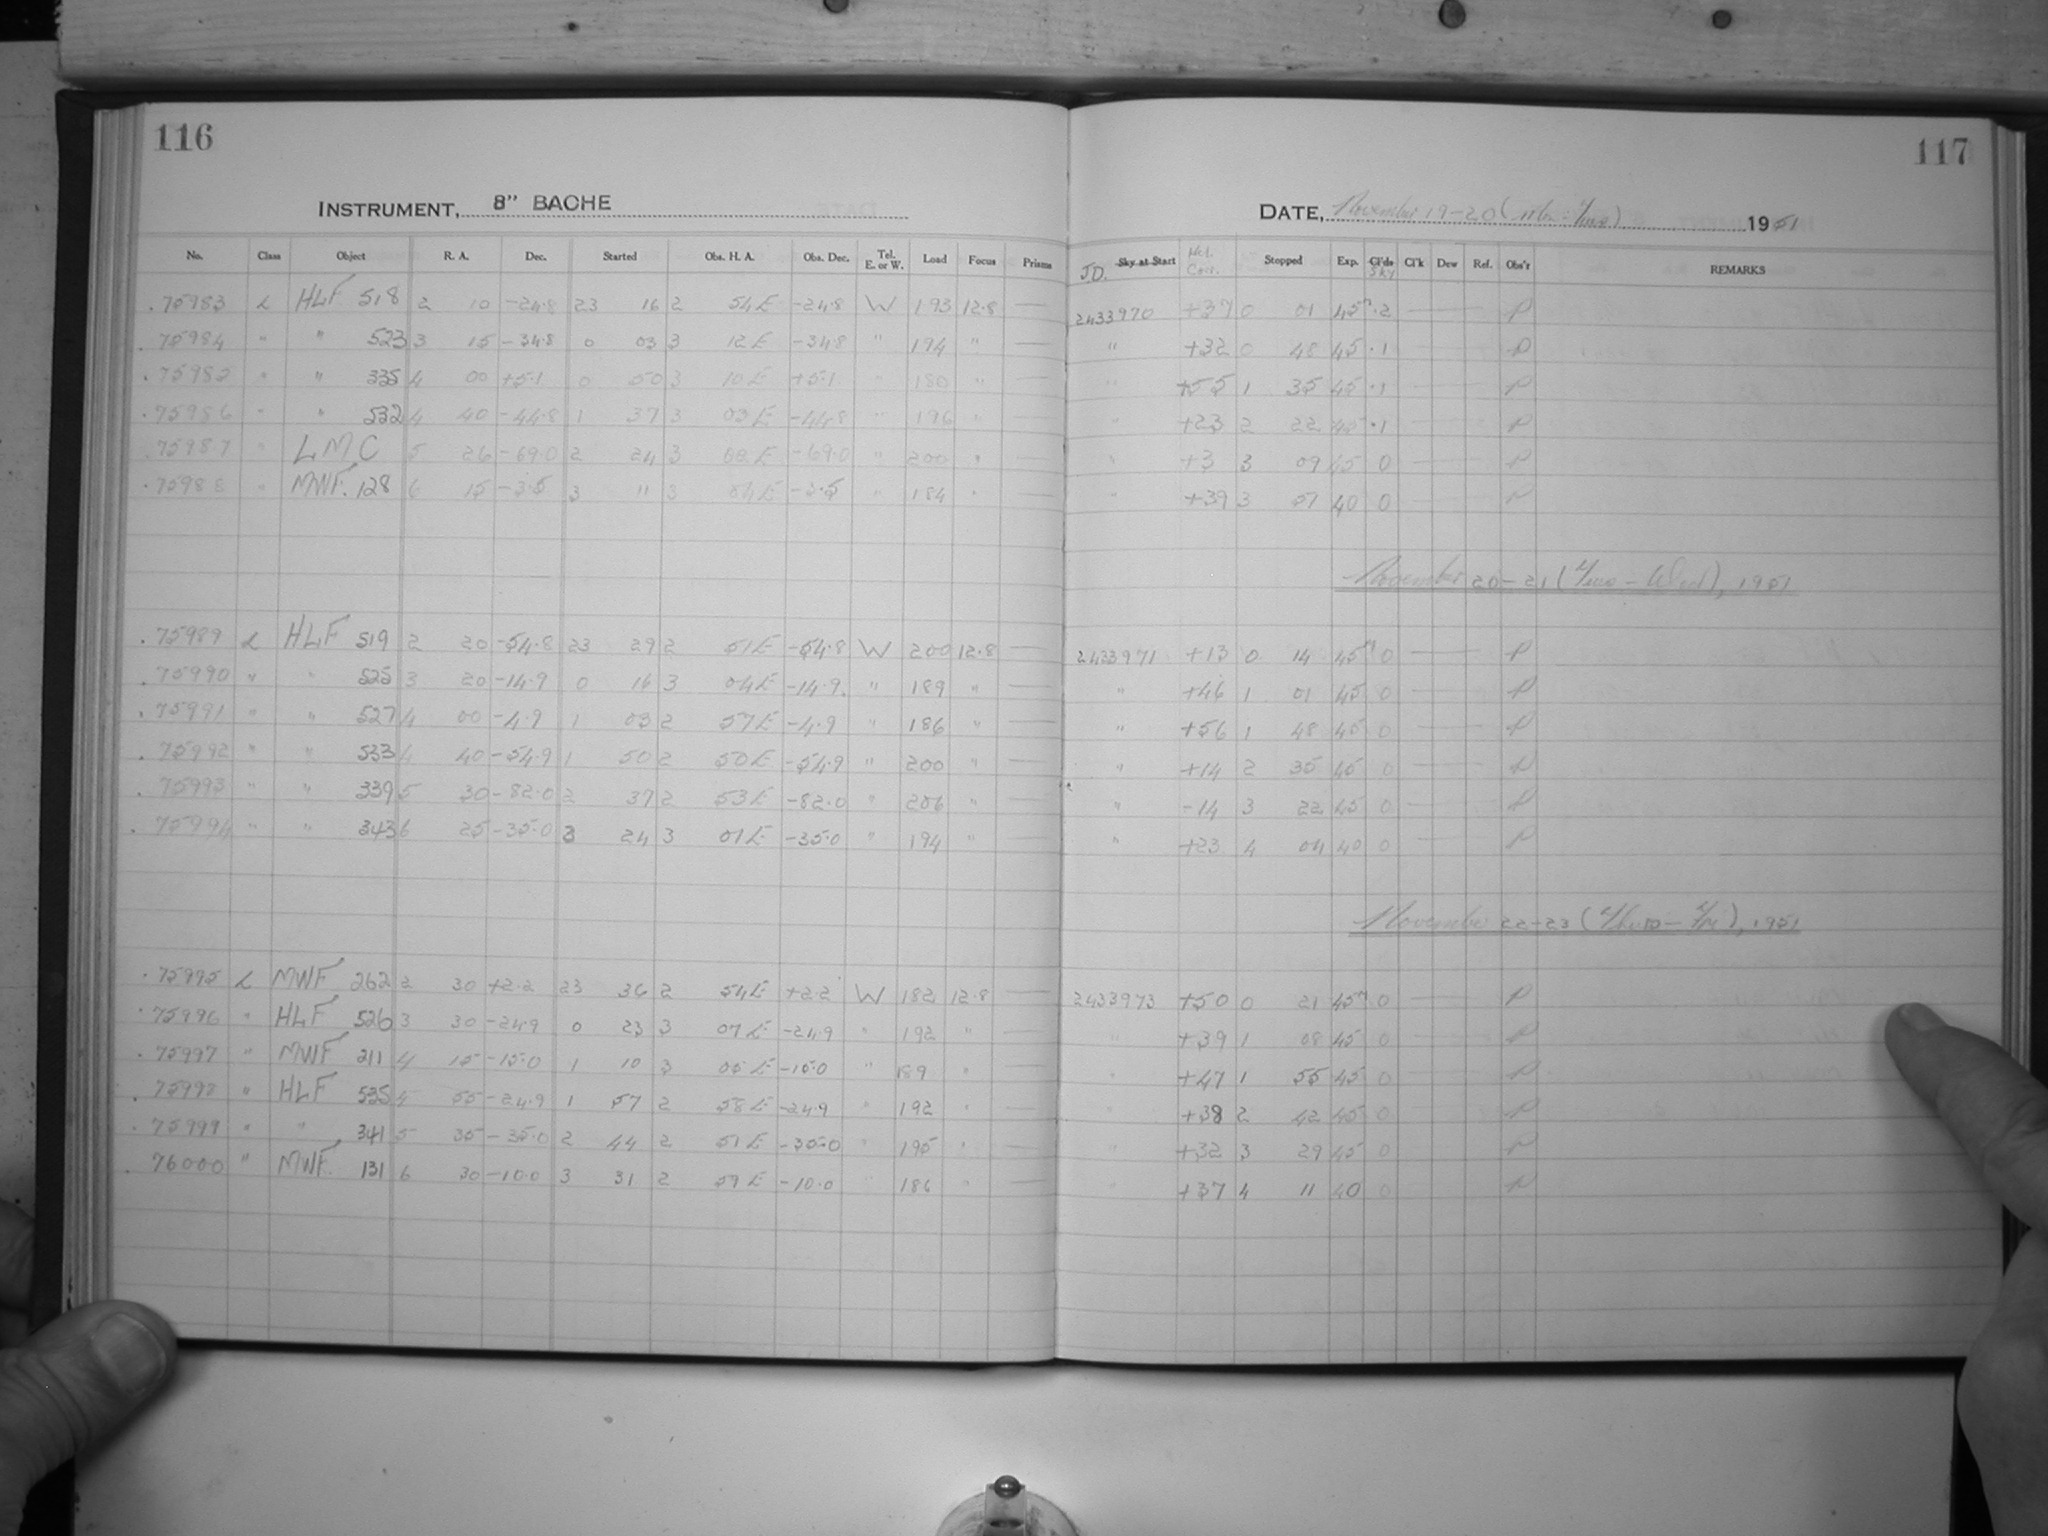 116
117
INSTRUMENT, 8" BACHE
DATE, November 19-20 (Mon-Tues) 1951
No. Class Object R. A. Dec. Started Obs. H. A. Obs. Dec. Tel. E. or W. Load Focus Prisms J.D. Sky at Start Hel. Corr. Stopped Exp. Cl'ds Sky Cl'k Dew Ref. Obs'r REMARKS
.75983 L HLF 518 2 10 -24.8 23 16 2 54 E -24.8 W 193 12.8 — 2433970 +37 0 01 45m .2 — — P
.75984 " " 523 3 15 -34.8 0 03 3 12 E -34.8 " 194 " — " +32 0 48 45 .1 — — P
.75985 " " 335 4 00 +5.1 0 50 3 10 E +5.1 " 180 " — " +55 1 35 45 .1 — — P
.75986 " " 532 4 40 -44.8 1 37 3 03 E -44.8 " 196 " — " +23 2 22 45 .1 — — P
.75987 " LMC 5 26 -69.0 2 24 3 02 E -69.0 " 200 " — " +3 3 09 45 0 — — P
.75988 " MWF. 128 6 15 -3.5 3 11 3 04 E -3.5 " 184 " — " +39 3 51 40 0 — — P
November 20-21 (Tues-Wed), 1951
.75989 L HLF 519 2 20 -54.8 23 29 2 51 E -54.8 W 200 12.8 — 2433971 +13 0 14 45m 0 — — P
.75990 " " 525 3 20 -14.9 0 16 3 04 E -14.9 " 189 " — " +46 1 01 45 0 — — P
.75991 " " 527 4 00 -4.9 1 03 2 57 E -4.9 " 186 " — " +56 1 48 45 0 — — P
.75992 " " 533 4 40 -54.9 1 50 2 50 E -54.9 " 200 " — " +14 2 35 45 0 — — P
.75993 " " 339 5 30 -82.0 2 37 2 53 E -82.0 " 206 " — " -14 3 22 45 0 — — P
.75994 " " 343 6 25 -35.0 3 24 3 01 E -35.0 " 194 " — " +23 4 04 40 0 — — P
November 22-23 (Thurs-Fri), 1951
.75995 L MWF 262 2 30 +2.2 23 36 2 54 E +2.2 W 182 12.8 — 2433973 +50 0 21 45m 0 — — P
.75996 " HLF 526 3 30 -24.9 0 23 3 07 E -24.9 " 192 " — " +39 1 08 45 0 — — P
.75997 " MWF 211 4 15 -15.0 1 10 3 05 E -15.0 " 189 " — " +47 1 55 45 0 — — P
.75998 " HLF 535 4 55 -24.9 1 57 2 58 E -24.9 " 192 " — " +38 2 42 45 0 — — P
.75999 " " 341 5 35 -35.0 2 44 2 51 E -35.0 " 195 " — " +32 3 29 45 0 — — P
.76000 " MWF. 131 6 30 -10.0 3 31 2 59 E -10.0 " 186 " — " +37 4 11 40 0 — — P